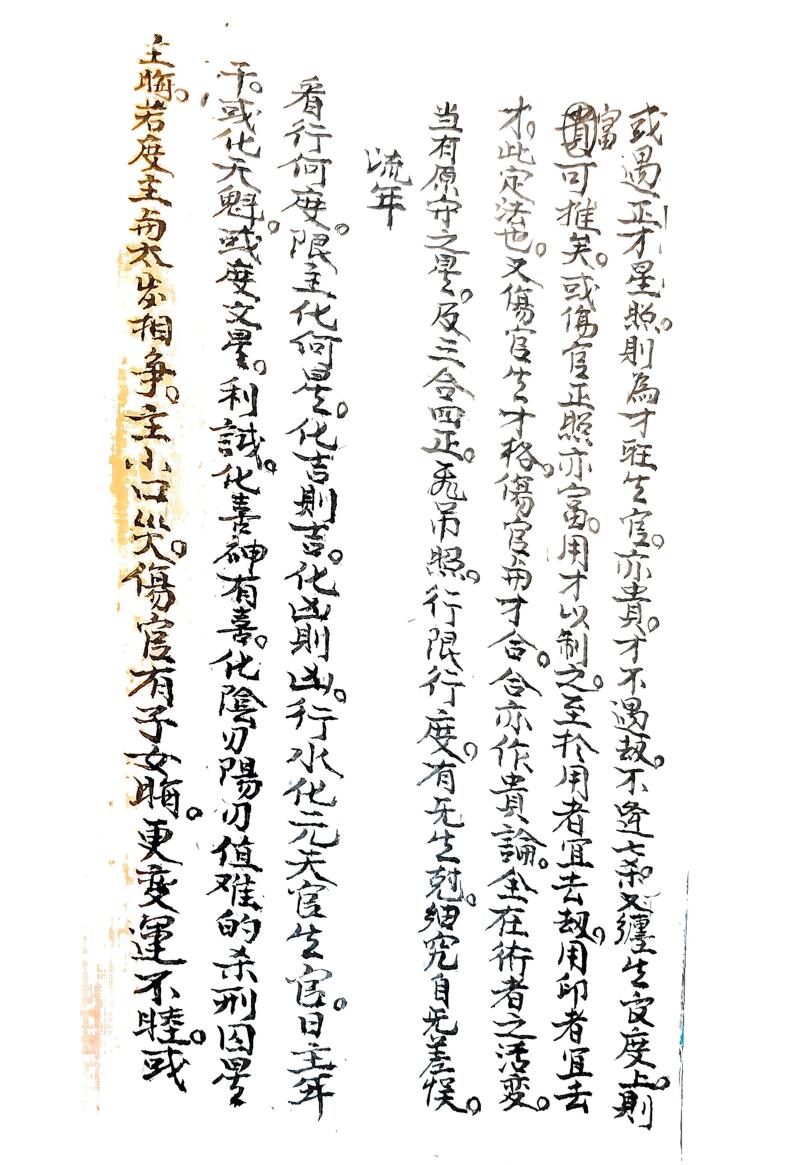 或遇正才星照。則為才旺生官。亦貴。才不遇劫。不逢七杀。又纏生官度上。則
富可推矣。或傷官正照亦富。用才以制之。至於用者宜去劫。用印者宜去
才。此定法也。又傷官生才格。傷官與才合。合亦作貴論。全在術者之活变。
当有原守之星。及三合四正。飛吊照。行限行度。有无生尅。細究自无差悮。
流年
看行何度。限主化何星。化吉則吉。化凶則凶。行水化元天官生官。日主年
干。或化元魁。或度文星。利試。化喜神有喜。化陰刃陽刃值难的杀刑囚星
主晦。若度主与太岁相争。主小口災。傷官有子女晦。更变運不睦。或